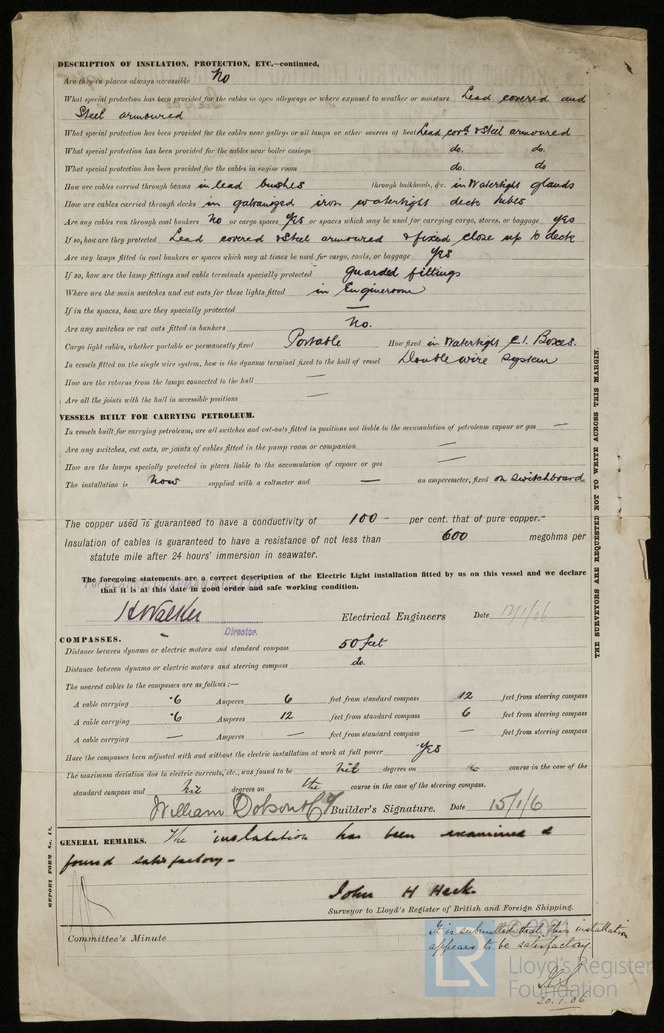 DESCRIPTION OF INSULATION, PROTECTION, ETC.—continued.
Are they in places always accessible No
What special protection has been provided for the cables in open alleyways or where exposed to weather or moisture Lead covered and
Steel armoured
What special protection has been provided for the cables near galleys or oil lamps or other sources of heat Lead covd & Steel armoured
What special protection has been provided for the cables near boiler casings do. do.
What special protection has been provided for the cables in engine room do. do
How are cables carried through beams in lead bushes through bulkheads, &c. in Watertight glands
How are cables carried through decks in galvanized iron watertight deck tubes
Are any cables run through coal bunkers No or cargo spaces Yes or spaces which may be used for carrying cargo, stores, or baggage yes
If so, how are they protected Lead covered & Steel armoured & fixed close up to deck
Are any lamps fitted in coal bunkers or spaces which may at times be used for cargo, coals, or baggage Yes
If so, how are the lamp fittings and cable terminals specially protected guarded fittings
Where are the main switches and cut outs for these lights fitted in Engineroom
If in the spaces, how are they specially protected —
Are any switches or cut outs fitted in bunkers No.
Cargo light cables, whether portable or permanently fixed Portable How fixed in Watertight C.I. Boxes.
In vessels fitted on the single wire system, how is the dynamo terminal fixed to the hull of vessel Double wire system
How are the returns from the lamps connected to the hull
Are all the joints with the hull in accessible positions —
VESSELS BUILT FOR CARRYING PETROLEUM.
In vessels built for carrying petroleum, are all switches and cut-outs fitted in positions not liable to the accumulation of petroleum vapour or gas —
Are any switches, cut outs, or joints of cables fitted in the pump room or companion —
How are the lamps specially protected in places liable to the accumulation of vapour or gas —
The installation is now supplied with a voltmeter and — an amperemeter, fixed on Switchboard
The copper used is guaranteed to have a conductivity of 100 per cent. that of pure copper.
Insulation of cables is guaranteed to have a resistance of not less than 600 megohms per
statute mile after 24 hours' immersion in seawater.
The foregoing statements are a correct description of the Electric Light installation fitted by us on this vessel and we declare
that it is at this date in good order and safe working condition.
H Walker Electrical Engineers Date 12/1/06
Director.
COMPASSES.
Distance between dynamo or electric motors and standard compass 50 feet
Distance between dynamo or electric motors and steering compass do.
The nearest cables to the compasses are as follows:—
A cable carrying ·6 Amperes 6 feet from standard compass 12 feet from steering compass
A cable carrying ·6 Amperes 12 feet from standard compass 6 feet from steering compass
A cable carrying — Amperes — feet from standard compass — feet from steering compass
Have the compasses been adjusted with and without the electric installation at work at full power Yes
The maximum deviation due to electric currents, etc., was found to be nil degrees on course in the case of the
standard compass and nil degrees on the course in the case of the steering compass.
William Dobson & Co Builder's Signature. Date 15/1/6
GENERAL REMARKS. The installation has been examined &
found satisfactory.
John H Heck.
Surveyor to Lloyd's Register of British and Foreign Shipping.
Committee's Minute
It is submitted that this installation
appears to be satisfactory.
20.1.06
THE SURVEYORS ARE REQUESTED NOT TO WRITE ACROSS THIS MARGIN.
© 2021
LR
Lloyd's Register
Foundation